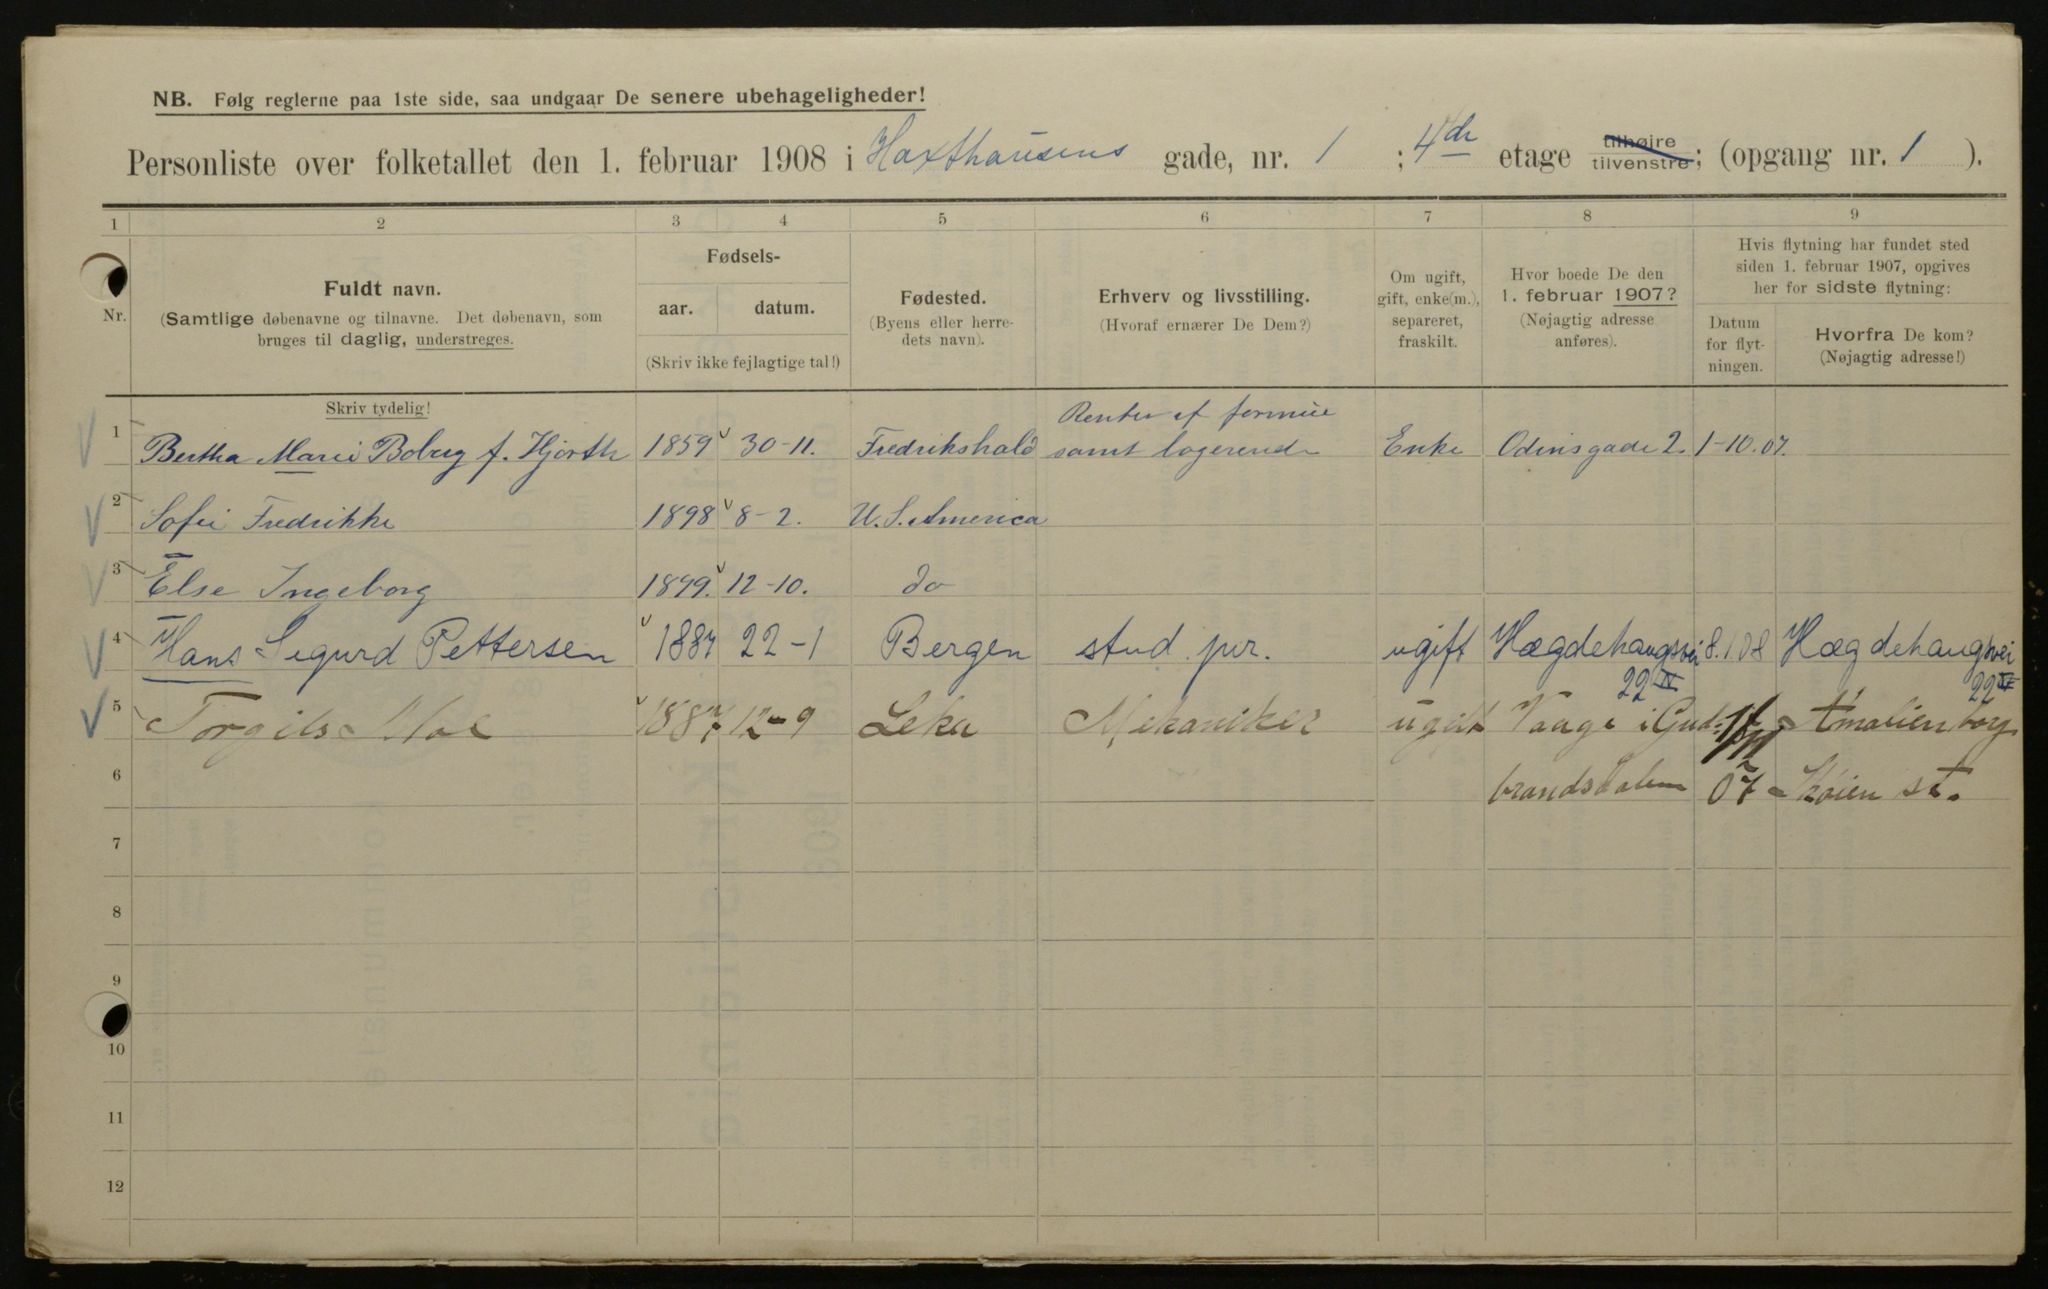 NB. Følg reglerne paa 1ste side, saa undgaar De senere ubehageligheder!
Personliste over folketallet den 1. februar 1908 i Haxthausens gade, nr. 1 ; 4de etage tilhøjre tilvenstre; (opgang nr. 1 ).
1 2 3 4 5 6 7 8 9
Nr.
Fuldt navn.
(Samtlige døbenavne og tilnavne. Det døbenavn, som
bruges til daglig, understreges.
Fødsels-
aar. datum.
(Skriv ikke fejlagtige tal!)
Fødested.
(Byens eller herre-
dets navn).
Erhverv og livsstilling.
(Hvoraf ernærer De Dem?)
Om ugift,
gift, enke(m.),
separeret,
fraskilt.
Hvor boede De den
1. februar 1907?
(Nøjagtig adresse
anføres).
Hvis flytning har fundet sted
siden 1. februar 1907, opgives
her for sidste flytning:
Datum
for flyt-
ningen.
Hvorfra De kom?
(Nøjagtig adresse!)
Skriv tydelig!
Renter af formue
1 Bertha Marie Boberg f. Hjorth 1859 30-11. Fredrikshald samt logerende Enke Odinsgade 2. 1-10.07.
2 Sofie Fredrikke 1898 8-2. U. S. America
3 Else Ingeborg 1899. 12-10. do
4 Hans Sigurd Pettersen 1887 22-1 Bergen stud. jur. ugift Hægdehaugsvei 8.1.08 Hægdehaugsvei
22 IV 22 IV
5 Torgils Moe 1887 12-9 Leka Mekaniker ugift Vaage i Gud- Amalienborg
6 brandsdalen 07 Skøien st.
7
8
9
10
11
12